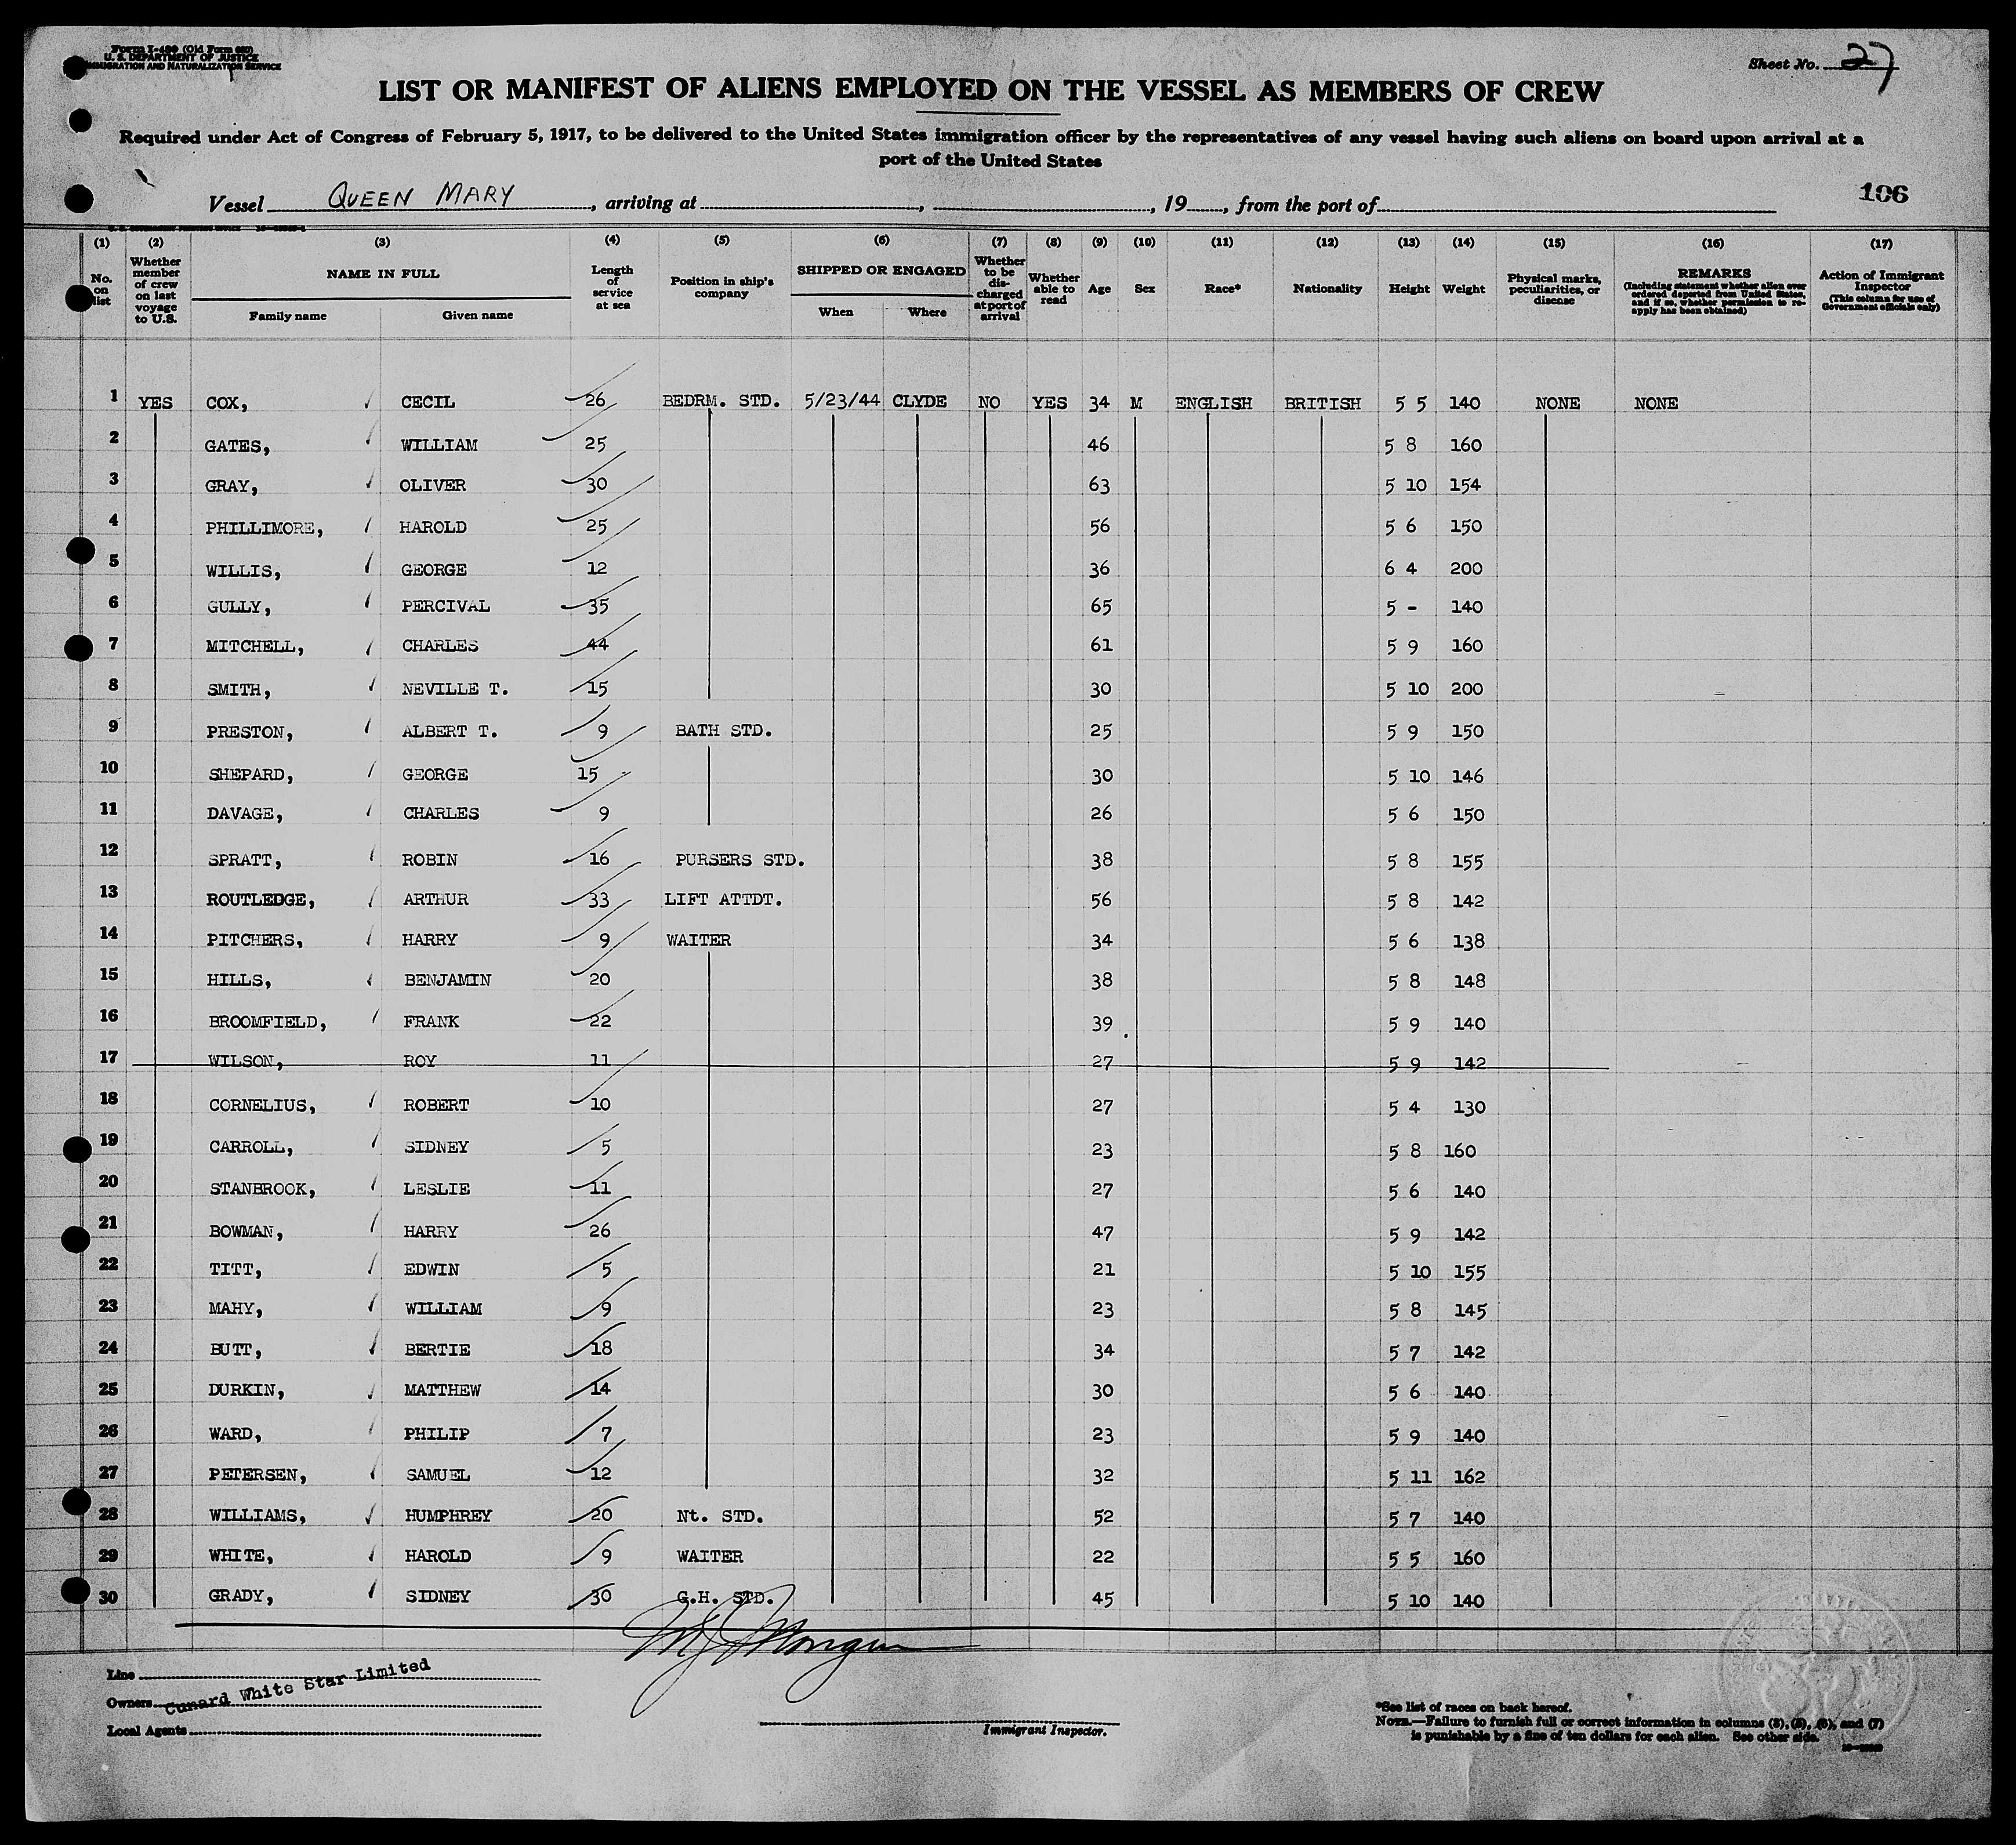 Form I-489 (Old Form 680)
U. S. DEPARTMENT OF JUSTICE
IMMIGRATION AND NATURALIZATION SERVICE
Sheet No. 27
LIST OR MANIFEST OF ALIENS EMPLOYED ON THE VESSEL AS MEMBERS OF CREW
Required under Act of Congress of February 5, 1917, to be delivered to the United States immigration officer by the representatives of any vessel having such aliens on board upon arrival at a
port of the United States
106
Vessel QUEEN MARY, arriving at , , 19 , from the port of
(1) (2) (3) (4) (5) (6) (7) (8) (9) (10) (11) (12) (13) (14) (15) (16) (17)
No. on list
Whether member of crew on last voyage to U.S.
NAME IN FULL
Family name Given name
Length of service at sea
Position in ship's company
SHIPPED OR ENGAGED
When Where
Whether to be discharged at port of arrival
Whether able to read
Age
Sex
Race*
Nationality
Height
Weight
Physical marks, peculiarities, or disease
REMARKS
(Including statement whether alien ever ordered deported from United States, and if so, whether permission to reapply has been obtained)
Action of Immigrant Inspector
(This column for use of Government officials only)
1 YES COX, CECIL 26 BEDRM. STD. 5/23/44 CLYDE NO YES 34 M ENGLISH BRITISH 5 5 140 NONE NONE
2 GATES, WILLIAM 25 46 5 8 160
3 GRAY, OLIVER 30 63 5 10 154
4 PHILLIMORE, HAROLD 25 56 5 6 150
5 WILLIS, GEORGE 12 36 6 4 200
6 GULLY, PERCIVAL 35 65 5 - 140
7 MITCHELL, CHARLES 44 61 5 9 160
8 SMITH, NEVILLE T. 15 30 5 10 200
9 PRESTON, ALBERT T. 9 BATH STD. 25 5 9 150
10 SHEPARD, GEORGE 15 30 5 10 146
11 DAVAGE, CHARLES 9 26 5 6 150
12 SPRATT, ROBIN 16 PURSERS STD. 38 5 8 155
13 ROUTLEDGE, ARTHUR 33 LIFT ATTDT. 56 5 8 142
14 PITCHERS, HARRY 9 WAITER 34 5 6 138
15 HILLS, BENJAMIN 20 38 5 8 148
16 BROOMFIELD, FRANK 22 39 5 9 140
17 WILSON, ROY 11 27 5 9 142
18 CORNELIUS, ROBERT 10 27 5 4 130
19 CARROLL, SIDNEY 5 23 5 8 160
20 STANBROOK, LESLIE 11 27 5 6 140
21 BOWMAN, HARRY 26 47 5 9 142
22 TITT, EDWIN 5 21 5 10 155
23 MAHY, WILLIAM 9 23 5 8 145
24 BUTT, BERTIE 18 34 5 7 142
25 DURKIN, MATTHEW 14 30 5 6 140
26 WARD, PHILIP 7 23 5 9 140
27 PETERSEN, SAMUEL 12 32 5 11 162
28 WILLIAMS, HUMPHREY 20 Nt. STD. 52 5 7 140
29 WHITE, HAROLD 9 WAITER 22 5 5 160
30 GRADY, SIDNEY 30 G.H. STD. 45 5 10 140
Line
Owners Cunard White Star Limited
Local Agents
Immigrant Inspector.
*See list of races on back hereof.
NOTE.—Failure to furnish full or correct information in columns (3), (5), (6), and (7)
is punishable by a fine of ten dollars for each alien. See other side.